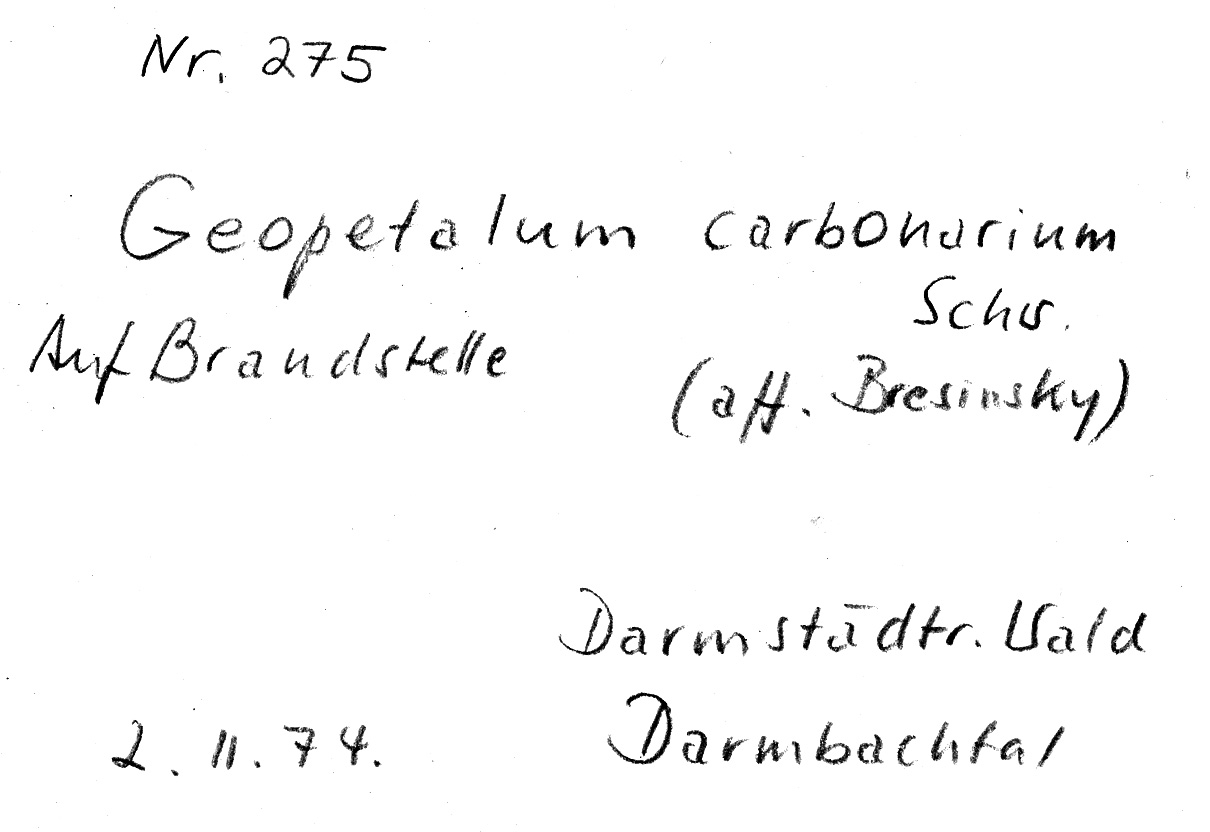 Nr. 275
Geopetalum carbonarium
Schw.
Auf Brandstelle
(aff. Bresinsky)
Darmstädtr. Wald
2.11.74. Darmbachtal